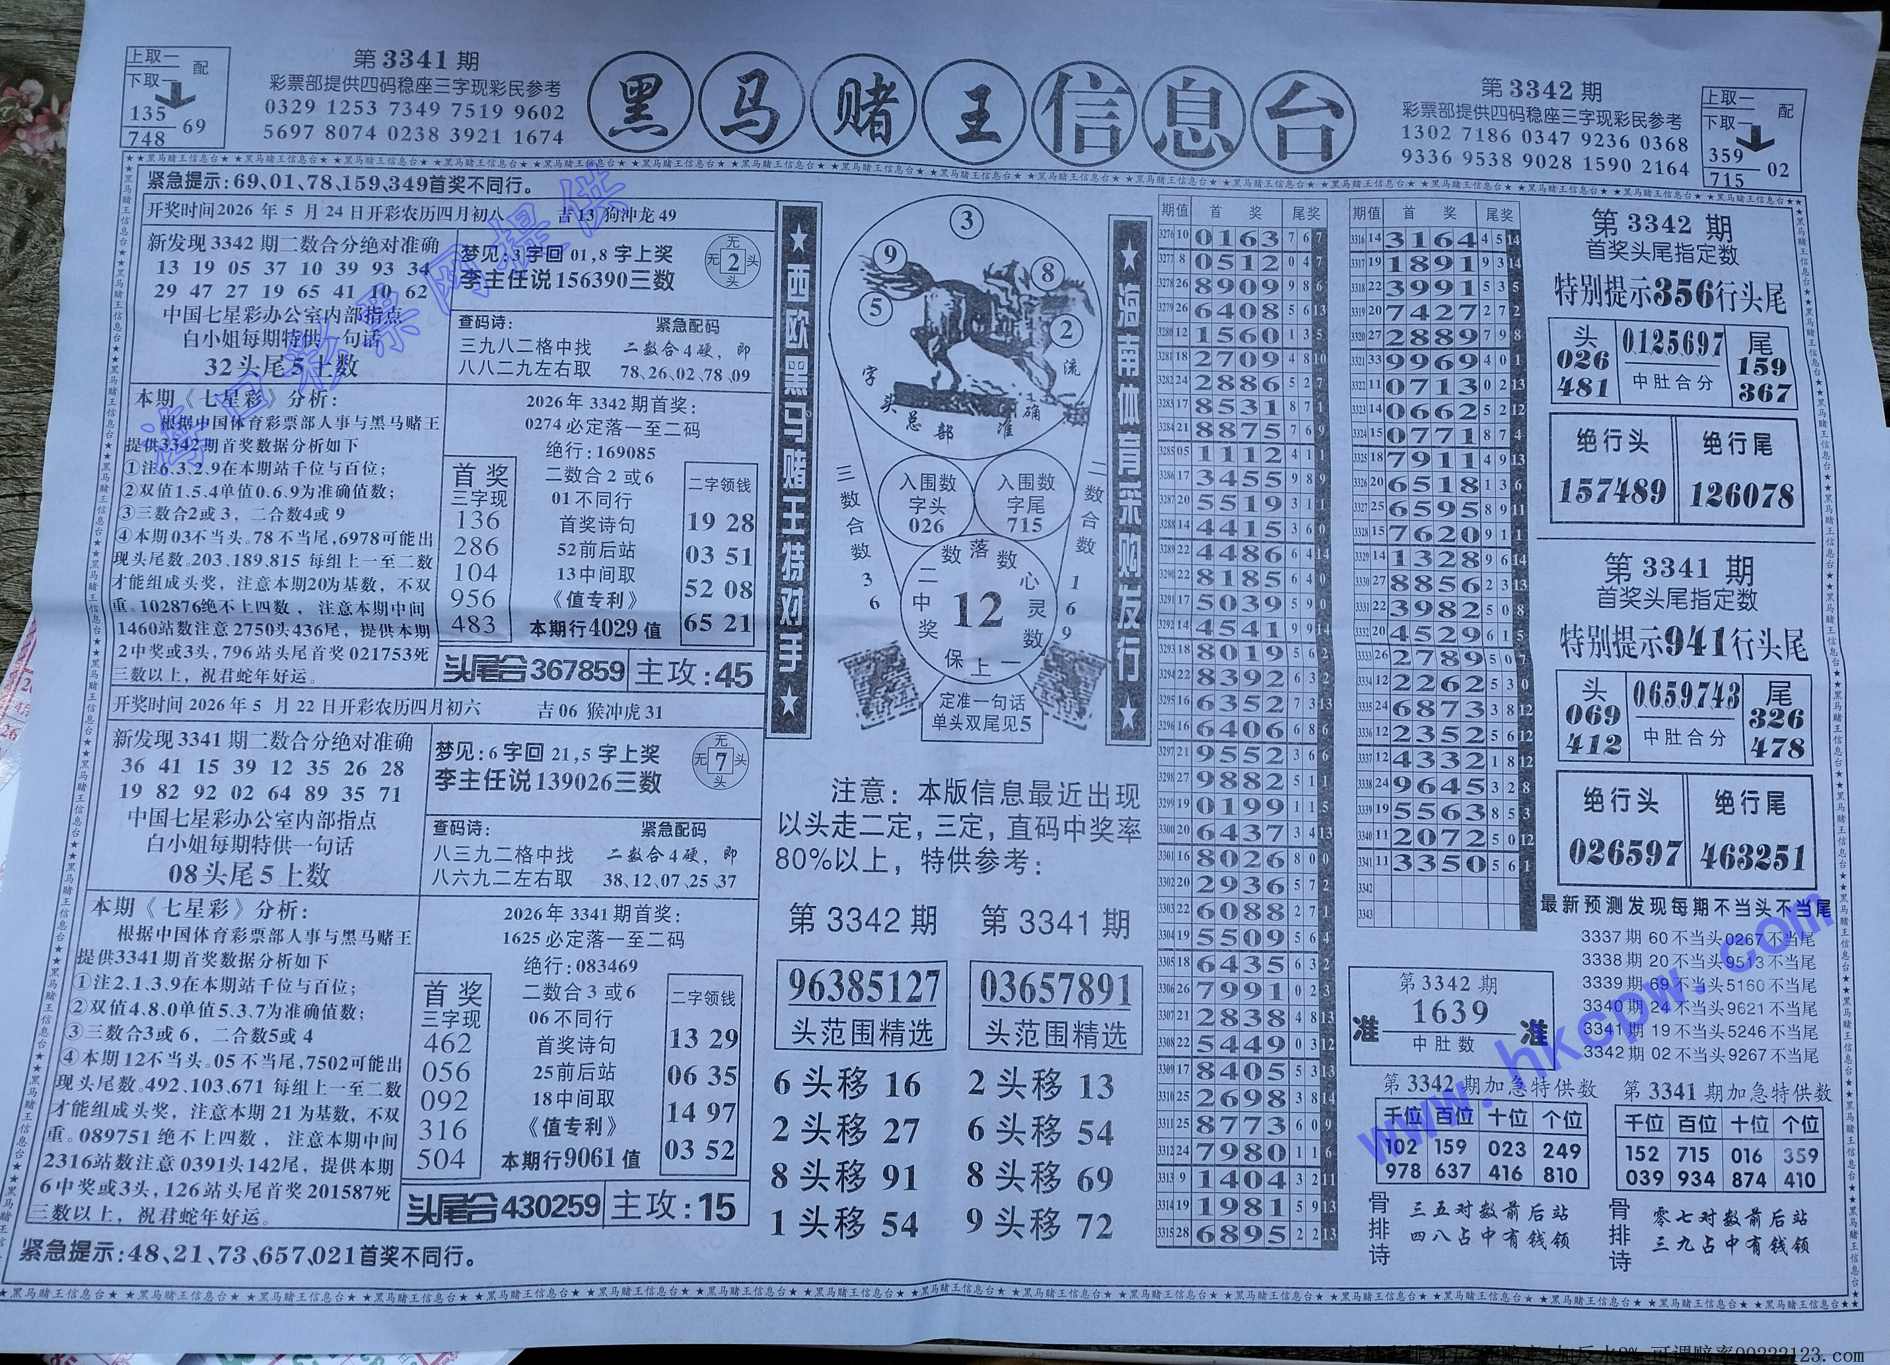 黑马赌王信息台
上取一
下取一
配
135
748
69
第3341期
彩票部提供四码稳座三字现彩民参考
0329 1253 7349 7519 9602
5697 8074 0238 3921 1674
第3342期
彩票部提供四码稳座三字现彩民参考
1302 7186 0347 9236 0368
9336 9538 9028 1590 2164
上取一
下取一
配
359
715
02
紧急提示:69、01、78、159、349首奖不同行。
开奖时间2026年5月24日开彩农历四月初八 吉13 狗冲龙49
新发现3342期二数合分绝对准确
13 19 05 37 10 39 93 34
29 47 27 19 65 41 10 62
中国七星彩办公室内部指点
白小姐每期特供一句话
32头尾5上数
梦见:3字回01,8字上奖
李主任说156390三数
无
无2头
头
查码诗:
三九八二格中找
八八二九左右取
紧急配码
二数合4硬,即
78、26、02、78、09
本期《七星彩》分析:
根据中国体育彩票部人事与黑马赌王
提供3342期首奖数据分析如下
①注6.3.2.9在本期站千位与百位;
②双值1.5.4单值0.6.9为准确值数;
③三数合2或3,二合数4或9
④本期03不当头。78不当尾,6978可能出
现头尾数。203.189.815每组上一至二数
才能组成头奖,注意本期20为基数,不双
重。102876绝不上四数,注意本期中间
1460站数注意2750头436尾,提供本期
2中奖或3头,796站头尾首奖021753死
三数以上,祝君蛇年好运。
2026年3342期首奖:
0274必定落一至二码
绝行:169085
首奖
三字现
136
286
104
956
483
二数合2或6
01不同行
首奖诗句
52前后站
13中间取
《值专利》
本期行4029值
二字领钱
19 28
03 51
52 08
65 21
头尾合367859
主攻:45
开奖时间2026年5月22日开彩农历四月初六 吉06 猴冲虎31
新发现3341期二数合分绝对准确
36 41 15 39 12 35 26 28
19 82 92 02 64 89 35 71
中国七星彩办公室内部指点
白小姐每期特供一句话
08头尾5上数
梦见:6字回21,5字上奖
李主任说139026三数
无
无7头
头
查码诗:
八三九二格中找
八六九二左右取
紧急配码
二数合4硬,即
38、12、07、25、37
本期《七星彩》分析:
根据中国体育彩票部人事与黑马赌王
提供3341期首奖数据分析如下
①注2.1.3.9在本期站千位与百位;
②双值4.8.0单值5.3.7为准确值数;
③三数合3或6,二合数5或4
④本期12不当头。05不当尾,7502可能出
现头尾数。492.103.671每组上一至二数
才能组成头奖,注意本期21为基数,不双
重。089751绝不上四数,注意本期中间
2316站数注意0391头142尾,提供本期
6中奖或3头,126站头尾首奖201587死
三数以上,祝君蛇年好运。
2026年3341期首奖:
1625必定落一至二码
绝行:083469
首奖
三字现
462
056
092
316
504
二数合3或6
06不同行
首奖诗句
25前后站
18中间取
《值专利》
本期行9061值
二字领钱
13 29
06 35
14 97
03 52
头尾合430259
主攻:15
紧急提示:48、21、73、657、021首奖不同行。
★西欧黑马赌王特对手★
③
⑨
⑧
⑤
②
字
流
头总部准确
入围数
字头
026
入围数
字尾
715
三数合数36
二数合数169
数落数
二中奖
12
心灵数
保上一
定准一句话
单头双尾见5
★海南体育采购发行★
注意:本版信息最近出现
以头走二定,三定,直码中奖率
80%以上,特供参考:
第3342期
96385127
头范围精选
6头移16
2头移27
8头移91
1头移54
第3341期
03657891
头范围精选
2头移13
6头移54
8头移69
9头移72
期值 首奖 尾奖
3276 10 0163 7 6 7
3277 8 0512 0 4 7
3278 26 8909 9 8 6
3279 26 6408 5 6 13
3280 12 1560 1 3 5
3281 18 2709 4 8 10
3282 24 2886 5 2 7
3283 17 8531 8 7 1
3284 21 8875 7 6 9
3285 05 1112 4 1 1
3286 17 3455 9 8 9
3287 20 5519 3 1 1
3288 14 4415 3 6 0
3289 22 4486 6 4 14
3290 22 8185 6 4 0
3291 17 5039 5 9 0
3292 14 4541 9 9 14
3293 18 8019 5 6 2
3294 22 8392 6 3 2
3295 16 6352 7 3 13
3296 16 6406 6 8 6
3297 21 9552 3 6 6
3298 27 9882 5 1 1
3299 19 0199 1 1 5
3300 20 6437 3 4 13
3301 16 8026 8 0 0
3302 20 2936 5 7 2
3303 22 6088 2 7 1
3304 19 5509 5 6 4
3305 18 6435 6 3 2
3306 26 7991 0 2 3
3307 21 2838 4 8 13
3308 22 5449 0 3 12
3309 17 8405 5 3 13
3310 25 2698 3 8 14
3311 25 8773 6 0 9
3312 24 7980 1 1 6
3313 9 1404 3 2 11
3314 19 1981 5 9 13
3315 28 6895 2 2 13
期值 首奖 尾奖
3316 14 3164 4 5 14
3317 19 1891 9 3 14
3318 22 3991 5 3 5
3319 20 7427 2 7 2
3320 27 2889 7 9 8
3321 33 9969 4 0 1
3322 11 0713 0 2 13
3323 14 0662 5 2 12
3324 15 0771 8 7 4
3325 18 7911 4 9 13
3326 20 6518 1 3 6
3327 25 6595 8 9 11
3328 15 7620 9 1 1
3329 14 1328 9 6 14
3330 27 8856 2 3 13
3331 22 3982 5 0 8
3332 20 4529 6 1 5
3333 26 2789 5 0 7
3334 12 2262 5 3 0
3335 24 6873 3 8 12
3336 12 2352 5 6 12
3337 12 4332 1 8 12
3338 24 9645 3 2 8
3339 19 5563 8 5 3
3340 11 2072 5 0 12
3341 11 3350 5 6 1
3342
3343
第3342期
首奖头尾指定数
特别提示356行头尾
头
026
481
0125697
中肚合分
尾
159
367
绝行头
157489
绝行尾
126078
第3341期
首奖头尾指定数
特别提示941行头尾
头
069
412
0659743
中肚合分
尾
326
478
绝行头
026597
绝行尾
463251
最新预测发现每期不当头不当尾
3337期60不当头0267不当尾
3338期20不当头9513不当尾
3339期69不当头5160不当尾
3340期24不当头9621不当尾
3341期19不当头5246不当尾
3342期02不当头9267不当尾
第3342期
准 1639 准
中肚数
第3342期加急特供数
千位 百位 十位 个位
102 159 023 249
978 637 416 810
骨排诗
三五对数前后站
四八占中有钱领
第3341期加急特供数
千位 百位 十位 个位
152 715 016 359
039 934 874 410
骨排诗
零七对数前后站
三九占中有钱领
海口彩票网提供
www.hkcpw.com